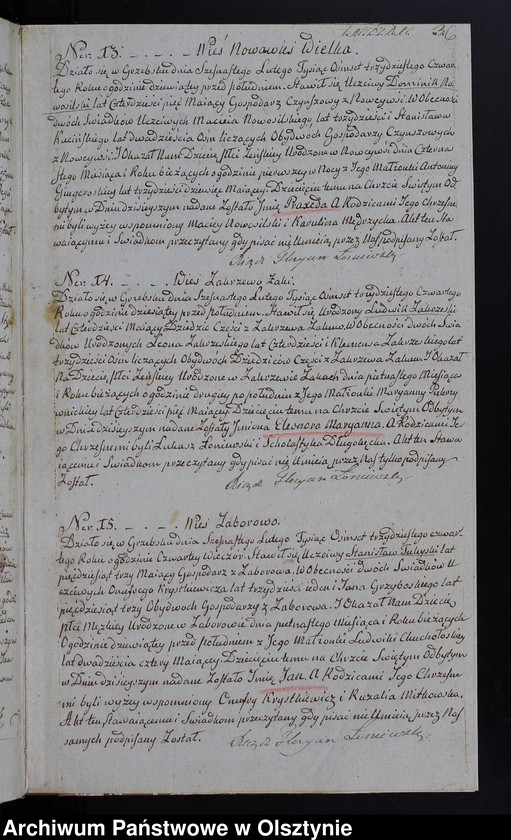 36
Ner. 13. - . - . - Wieś Nowawieś Wielka.
Działo się w Grzebsku dnia Szesnastego Lutego Tysiąc Osmset trzydziestego Czwar
tego Roku o godzinie dziewiątey przed południem. Stawił się Uczciwy Dominik No
wosilski lat Czterdzieści pięć Maiący Gospodarz Czynszowy z Nowejwsi. W Obecności
dwóch Świadków Uczciwych Macieia Nowosilskiego lat trzydzieści i Stanisława
Kucińskiego lat dwadzieścia Osm liczących Obydwóch Gospodarzy Czynszowych
z Nowejwsi: I Okazał Nam Dziecię płci Żeńskiey Urodzone w Nowejwsi dnia Czterna
stego Miesiąca i Roku bieżących o godzinie pierwszey w Nocy z Jego Małżonki Antoniny
lat trzydzieści dziewięć Maiącey. Dziecięciu temu na Chrzcie Świętym Od
bytym w Dniu dzisieyszym nadane Zostało Imię Praxeda. A Rodzicami Jego Chrzestne
mi byli wyżey wspomniony Maciey Nowosilski i Karolina Mędrzycka. Akt ten Sta
waiącemu i Świadkom przeczytany gdy pisać nie Umieią, przez Nas podpisany Został.
Xiądz Floryan Łoniewski
Ner. 14. - . - . Wieś Zakrzewo Żaki.
Działo się w Grzebsku dnia Szesnastego Lutego Tysiąc Osmset trzydziestego Czwartego
Roku o godzinie dziesiątey przed południem. Stawił się Urodzony Ludwik Zakrzeski
lat Czterdzieści Maiący Dziedzic Części z Zakrzewa Żaków. W Obecności dwóch Świa
dków Urodzonych Leona Zakrzeskiego lat Czterdzieści i Klemensa Zakrzeskiego lat
trzydzieści Osm liczących Obydwóch Dziedziców Części z Zakrzewa Żaków. I Okazał
Na Dziecię płci Żeńskiey Urodzone w Zakrzewie Żakach dnia piętnastego Miesiąca
i Roku bieżących o godzinie drugiey po południu z Jego Małżonki Maryanny
lat Czterdzieści pięć Maiącey. Dziecięciu temu na Chrzcie Świętym Odbytym
w Dniu dzisieyszym nadane Zostały Imiona Eleonora Maryanna. A Rodzicami Je
go Chrzestnemi byli Łukasz Łoniewski i Scholastyka Długołęcka. Akt ten Stawa
iącemu i Świadkom przeczytany gdy pisać nie Umieią przez Nas tylko podpisany
Został.
Xiądz Floryan Łoniewski
Ner. 15. - . - . - Wieś Zaborowo.
Działo się w Grzebsku dnia Szesnastego Lutego Tysiąc Osmset trzydziestego czwar
tego Roku o godzinie Czwartey Wieczór. Stawił się Uczciwy Stanisław lat
pięćdziesiąt trzy Maiący Gospodarz z Zaborowa. W Obecności dwóch Świadków U
czciwych Onufrego Krystkiewicza lat trzydzieści ieden i Jana Grzybowskiego lat
pięćdziesiąt trzy Obydwóch Gospodarzy z Zaborowa. I Okazał Nam Dziecię
płci Męzkiey Urodzone w Zaborowie dnia piętnastego Miesiąca i Roku bieżących
O godzinie dziewiątey przed południem z Jego Małżonki Ludwiki Chucholskiey
lat dwadzieścia cztery Maiącey. Dziecięciu temu na Chrzcie Świętym Odbytym
w Dniu dzisieyszym nadane Zostało Imię Jan. A Rodzicami Jego Chrzestne
mi byli wyżey wspomniony Onufry Krystkiewicz i Rozalia Mitkowska.
Akt ten, stawaiącemu i Świadkom przeczytany, gdy pisać nie Umieią przez Nas
samych podpisany Został.
Xiądz Floryan Łoniewski
Archiwum Państwowe w Olsztynie